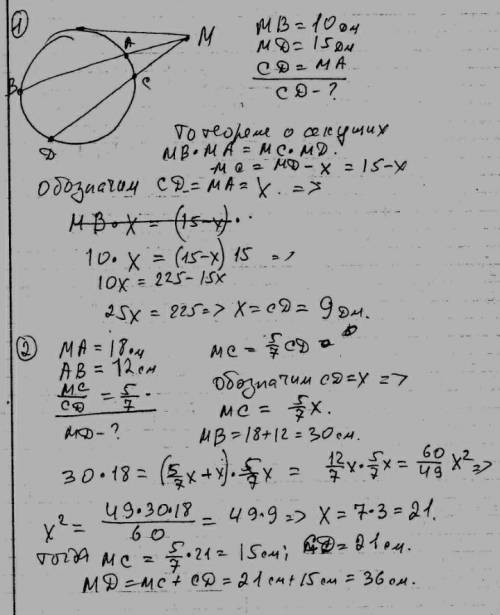 1
M
A
C
B
D
MB = 10 дм
MD = 15 дм
CD = MA
CD - ?
По теореме о секущих
MB · MA = MC · MD.
MC = MD - x = 15 - x
Обозначим CD = MA = x. =>
MB · x = (15-x) ·
10 · x = (15-x) 15 =>
10x = 225 - 15x
25x = 225 => x = CD = 9 дм.
2
MA = 18 см
AB = 12 см
MC/CD = 5/7.
MD - ?
MC = 5/7 CD
обозначим CD = x =>
MC = 5/7 x.
MB = 18 + 12 = 30 см.
30 · 18 = (5/7 x + x) · 5/7 x = 12/7 x · 5/7 x = 60/49 x² =>
x² = 49·30·18/60 = 49 · 9 => x = 7 · 3 = 21.
тогда MC = 5/7 · 21 = 15 см; CD = 21 см.
MD = MC + CD = 21 см + 15 см = 36 см.